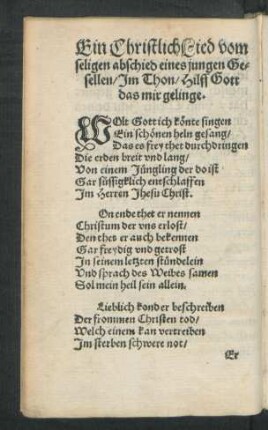 Ein Christlich Lied vom
seligen abschied eines jungen Ge-
sellen/ Im Thon/ Hilff Gott
das mir gelinge.
WOlt Gott ich könte singen
Ein schönen heln gesang/
Das es frey thet durchdringen
Die erden breit vnd lang/
Von einem Jüngling der do ist
Gar süssigklich entschlaffen
Im Herren Jhesu Christ.
On ende thet er nennen
Christum der vns erlost/
Den thet er auch bekennen
Gar freydig vnd getrost
In seinem letzten stündelein
Vnd sprach des Weibes samen
Sol mein heil sein allein.
Lieblich konder beschreiben
Der frommen Christen tod/
Welch einem kan vertreiben
Im sterben schwere not/
Er